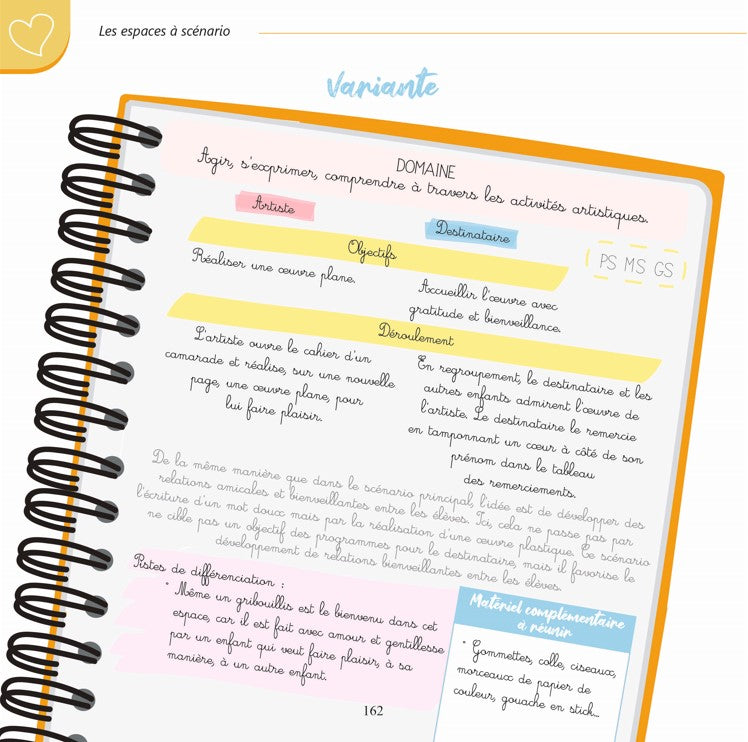 Les espaces à scénario
Variante
DOMAINE
Agir, s'exprimer, comprendre à travers les activités artistiques.
Artiste
Destinataire
Objectifs
PS MS GS
Réaliser une œuvre plane.
Accueillir l'œuvre avec
gratitude et bienveillance.
Déroulement
L'artiste ouvre le cahier d'un
camarade et réalise, sur une nouvelle
page, une œuvre plane, pour
lui faire plaisir.
En regroupement, le destinataire et les
autres enfants admirent l'œuvre de
l'artiste. Le destinataire le remercie
en tamponnant un cœur à côté de son
prénom dans le tableau
des remerciements.
De la même manière que dans le scénario principal, l'idée est de développer des
relations amicales et bienveillantes entre les élèves. Ici, cela ne passe pas par
l'écriture d'un mot doux mais par la réalisation d'une œuvre plastique. Ce scénario
ne cible pas un objectif des programmes pour le destinataire, mais il favorise le
développement de relations bienveillantes entre les élèves.
Pistes de différenciation :
• Même un gribouillis est le bienvenu dans cet
espace, car il est fait avec amour et gentillesse
par un enfant qui veut faire plaisir, à sa
manière, à un autre enfant.
Matériel complémentaire
à réunir
• Gommettes, colle, ciseaux,
morceaux de papier de
couleur, gouache en stick...
162